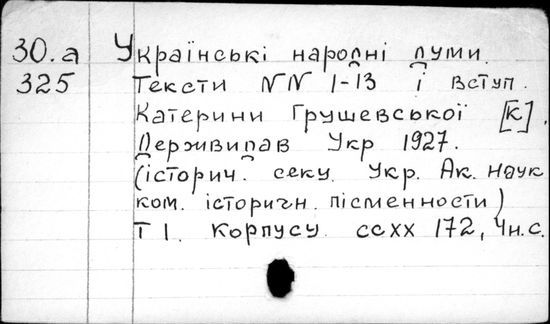 30.а Українські народні думи.
325 Тексти NN 1-13 і вступ.
Катерини Грушевської [К].
Державидав Укр 1927.
(історич. секц. Укр. Ак. наук
ком. історичн. пісменности)
Т 1. Корпусу ссхх 172, 4н.с.